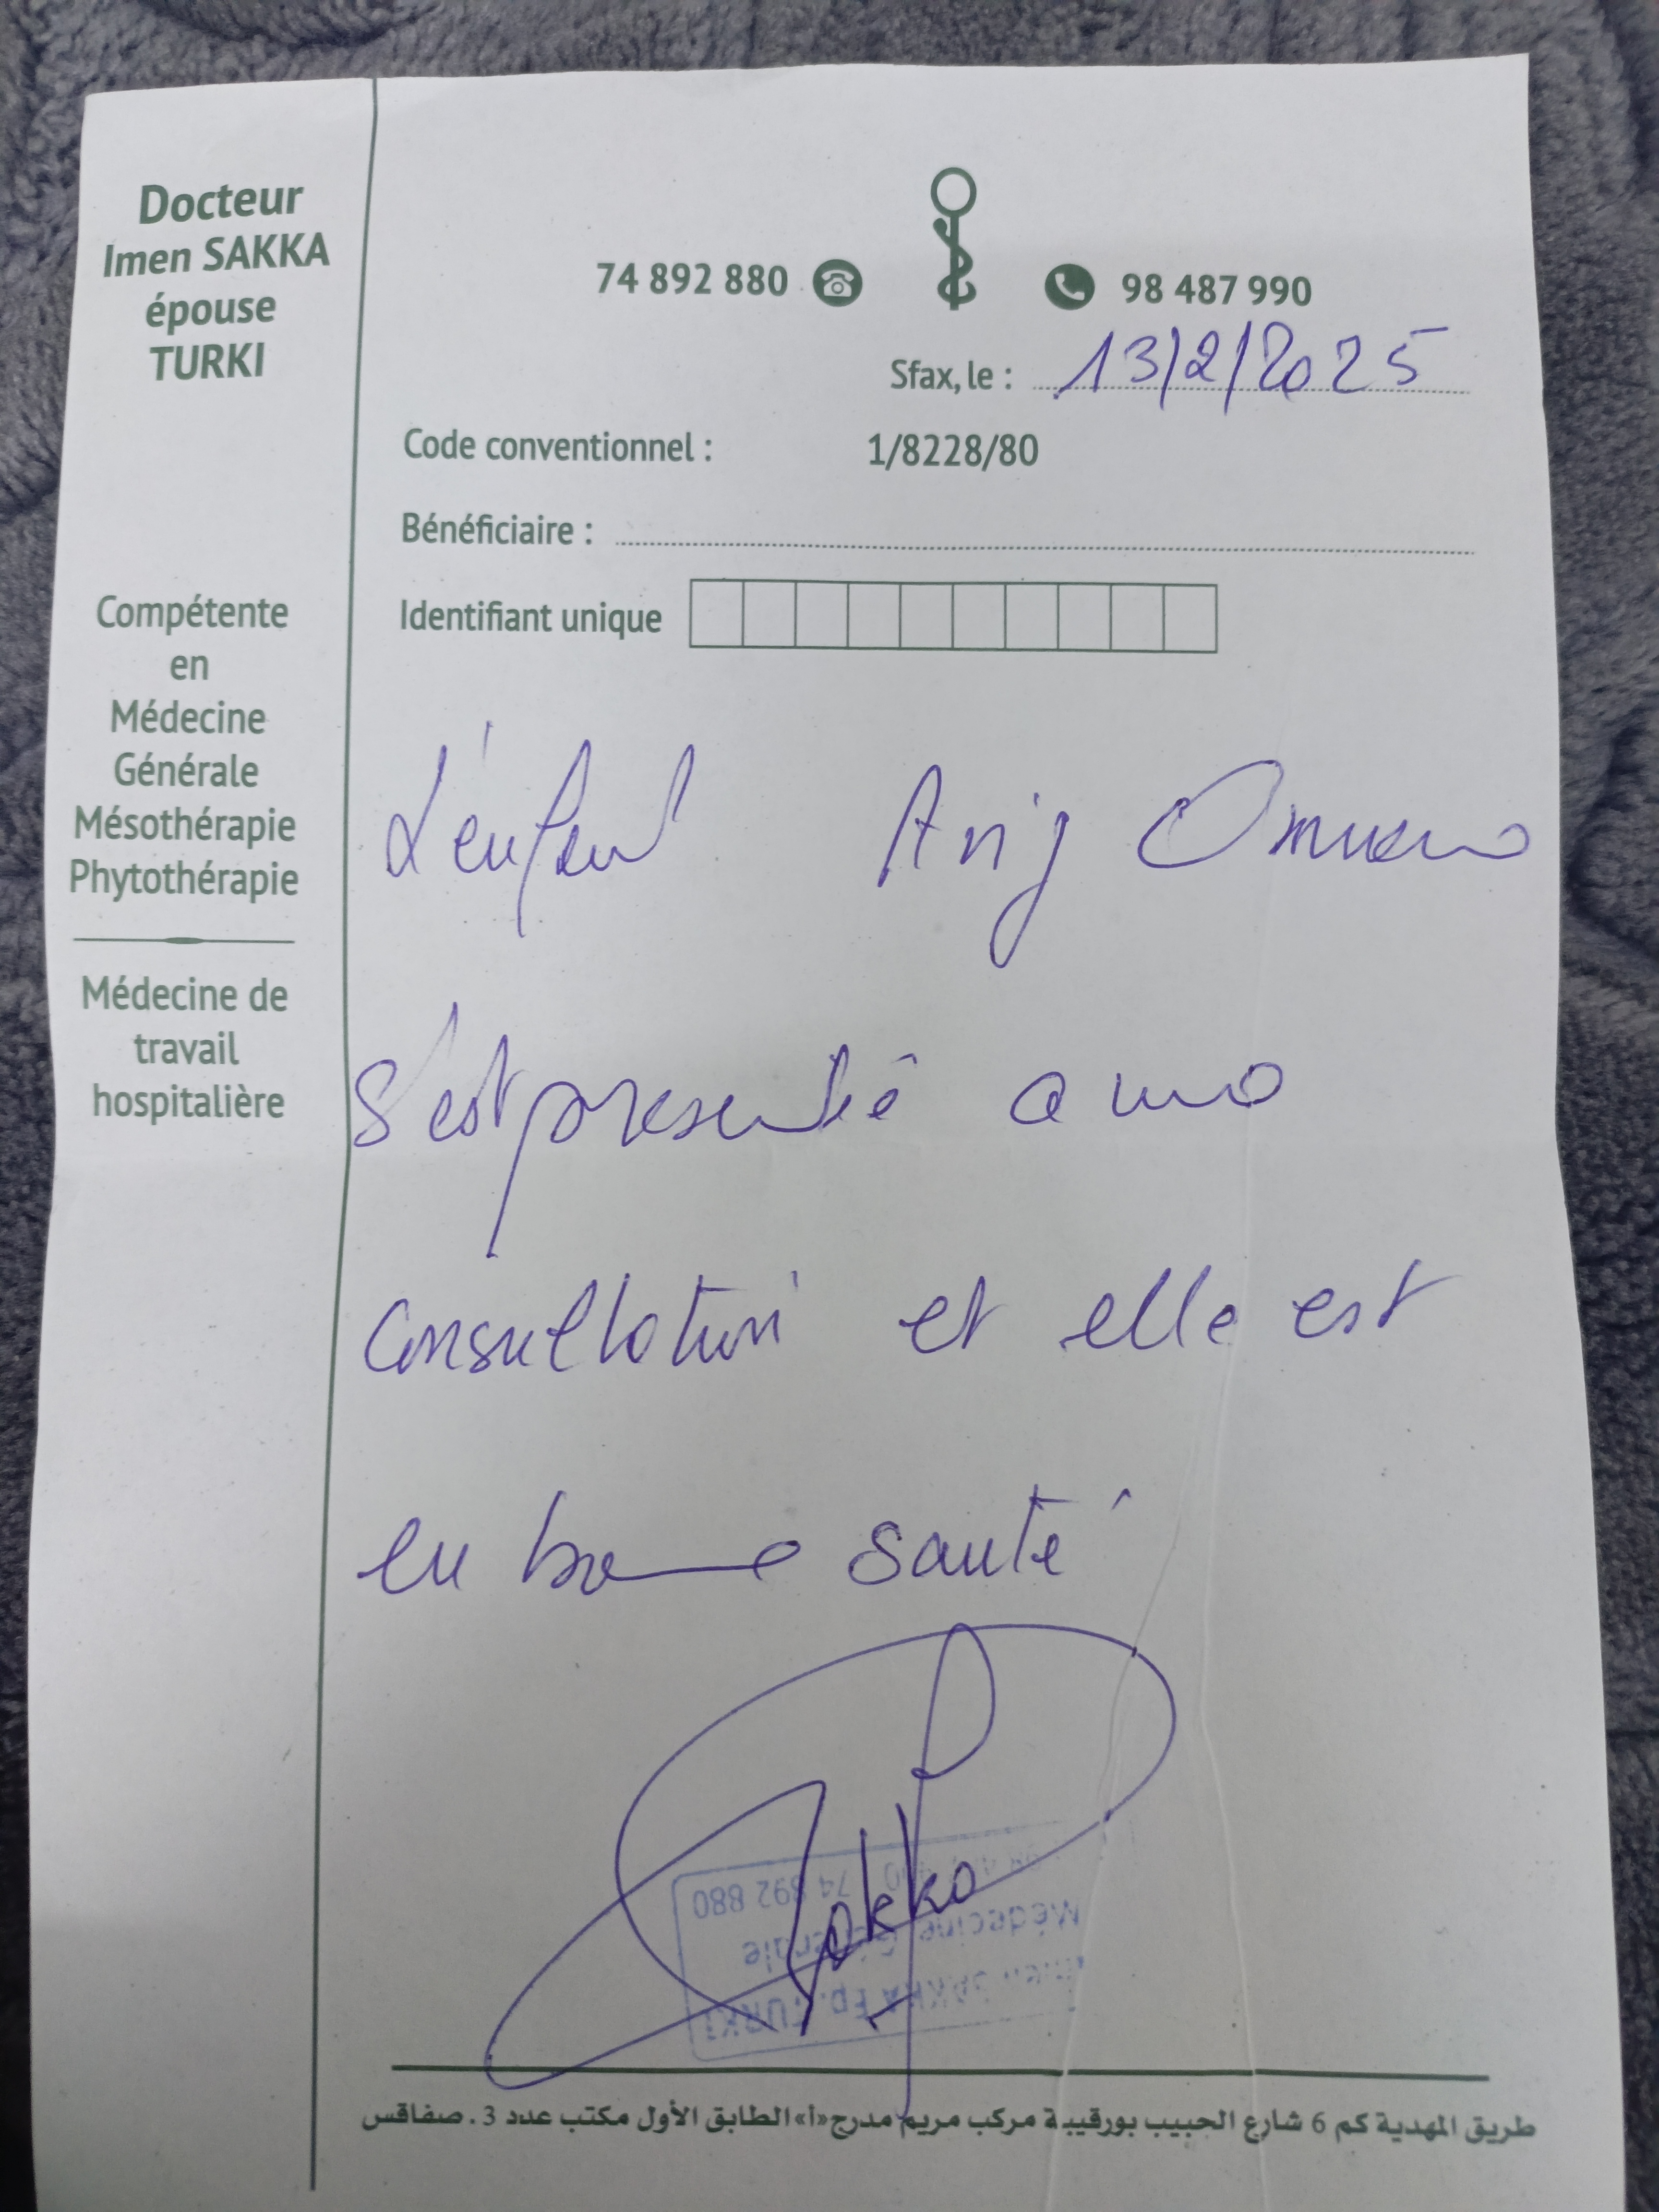 Docteur
Imen SAKKA
épouse
TURKI
Compétente
en
Médecine
Générale
Mésothérapie
Phytothérapie
Médecine de
travail
hospitalière
74 892 880 98 487 990
Sfax, le : 13/2/2025
Code conventionnel : 1/8228/80
Bénéficiaire :
Identifiant unique
L'enfant Arij
s'est presenté a ma
consultation et elle est
en bonne santé
Sakka
74 892 880
Médecine Générale
Imen SAKKA Ep. TURKI
طريق المهدية كم 6 شارع الحبيب بورقيبة مركب مريم مدرج «أ» الطابق الأول مكتب عدد 3 . صفاقس